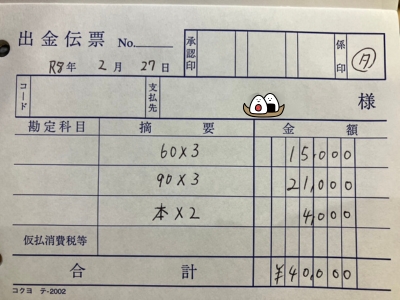 出金伝票 No. 承認印 係印 タ
R8年 2月 27日
コード 支払先 様
勘定科目 摘要 金額
60×3 15,000
90×3 21,000
本×2 4,000
仮払消費税等
合計 ¥40,000
コクヨ テ-2002